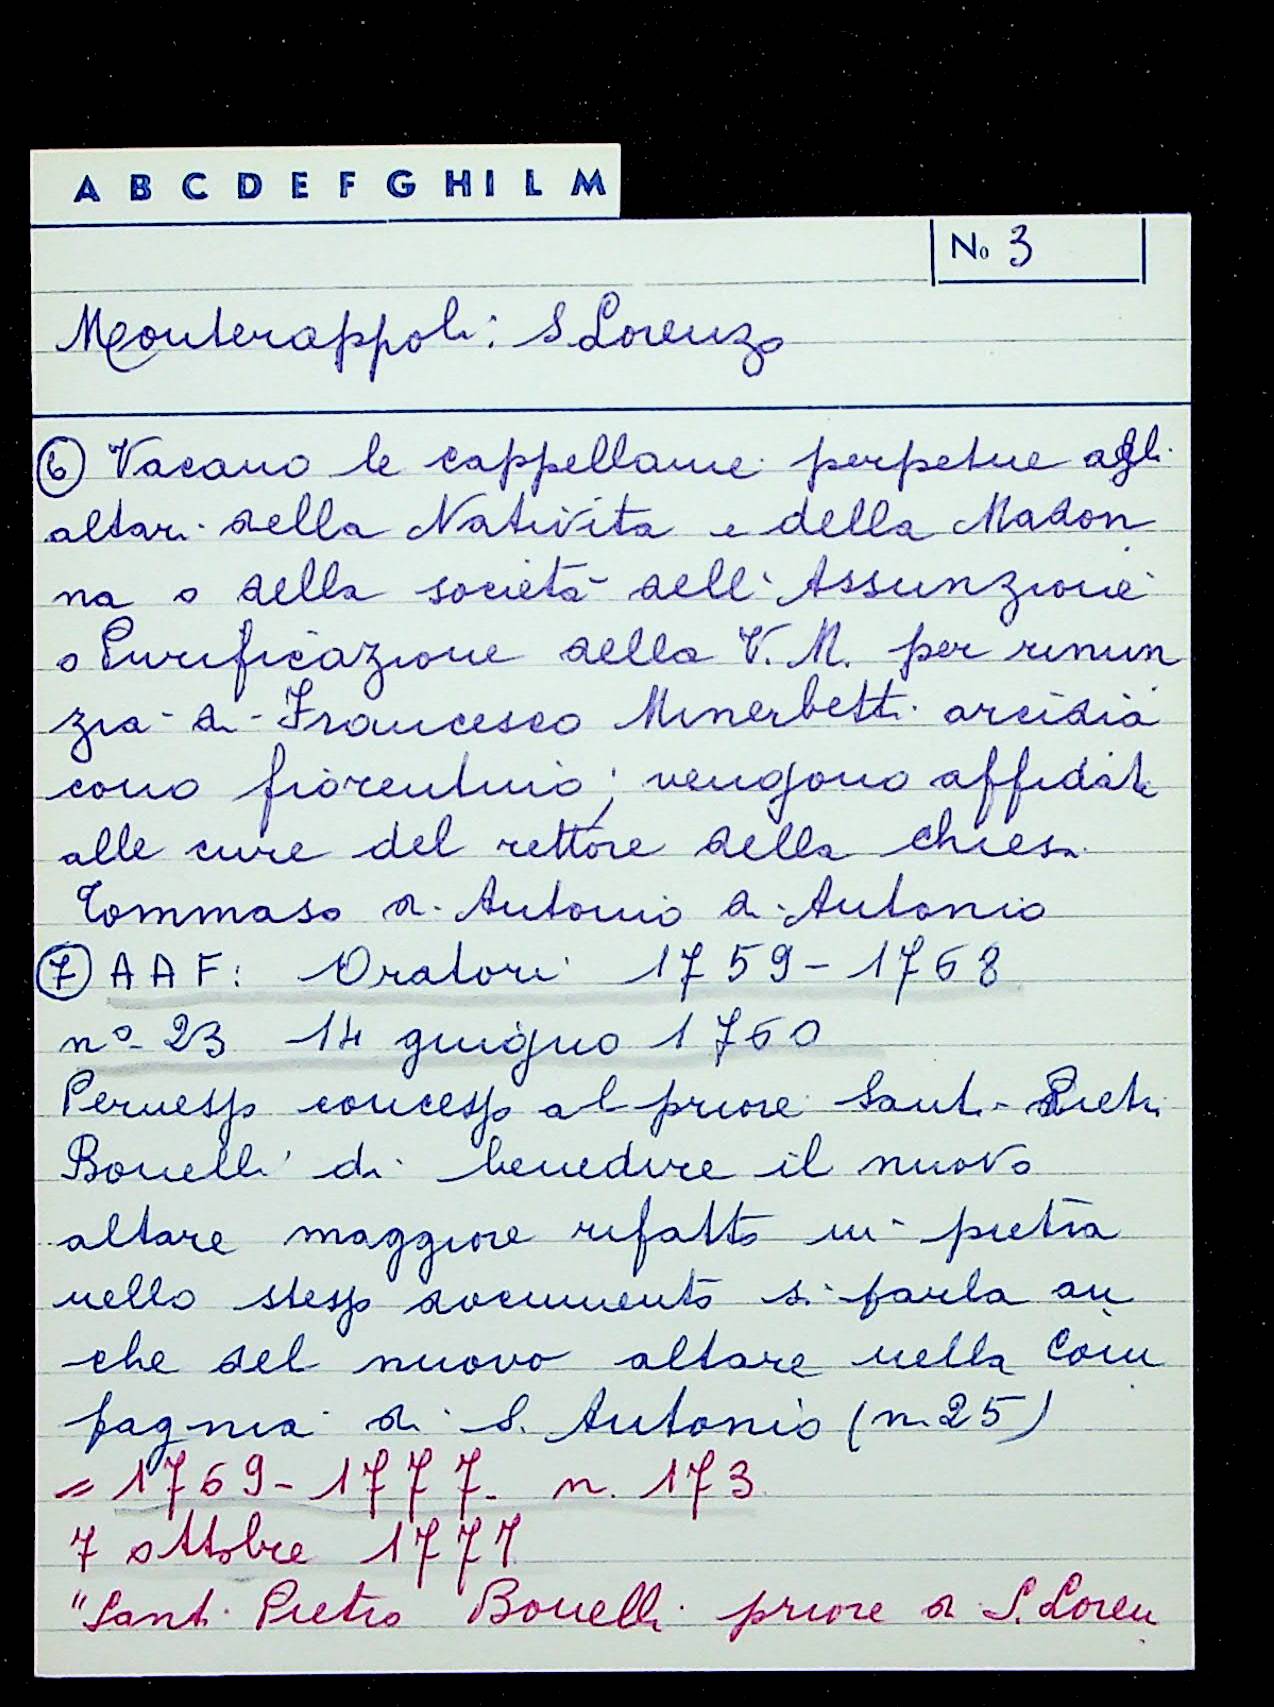 A B C D E F G H I L M
No 3
Monterappoli: S. Lorenzo
⑥ Vacano le cappellanie perpetue agli
altari della Natività e della Madon
na o della società dell'Assunzione
o Purificazione della V. M. per rinun
zia di Francesco Minerbetti arcidia
cono fiorentino; vengono affidate
alle cure del rettore della chiesa
Tommaso di Antonio di Antonio
⑦ A A F: Oratori 1759-1768
nº 23 14 giugno 1760
Permesso concesso al priore Santi Pietri
Bonelli di benedire il nuovo
altare maggiore rifatto in pietra
nello stesso documento si parla an
che del nuovo altare nella Com
pagnia di S. Antonio (n. 25)
= 1769-1777. n. 173
7 ottobre 1777
"Santi Pietro Bonelli priore di S. Loren